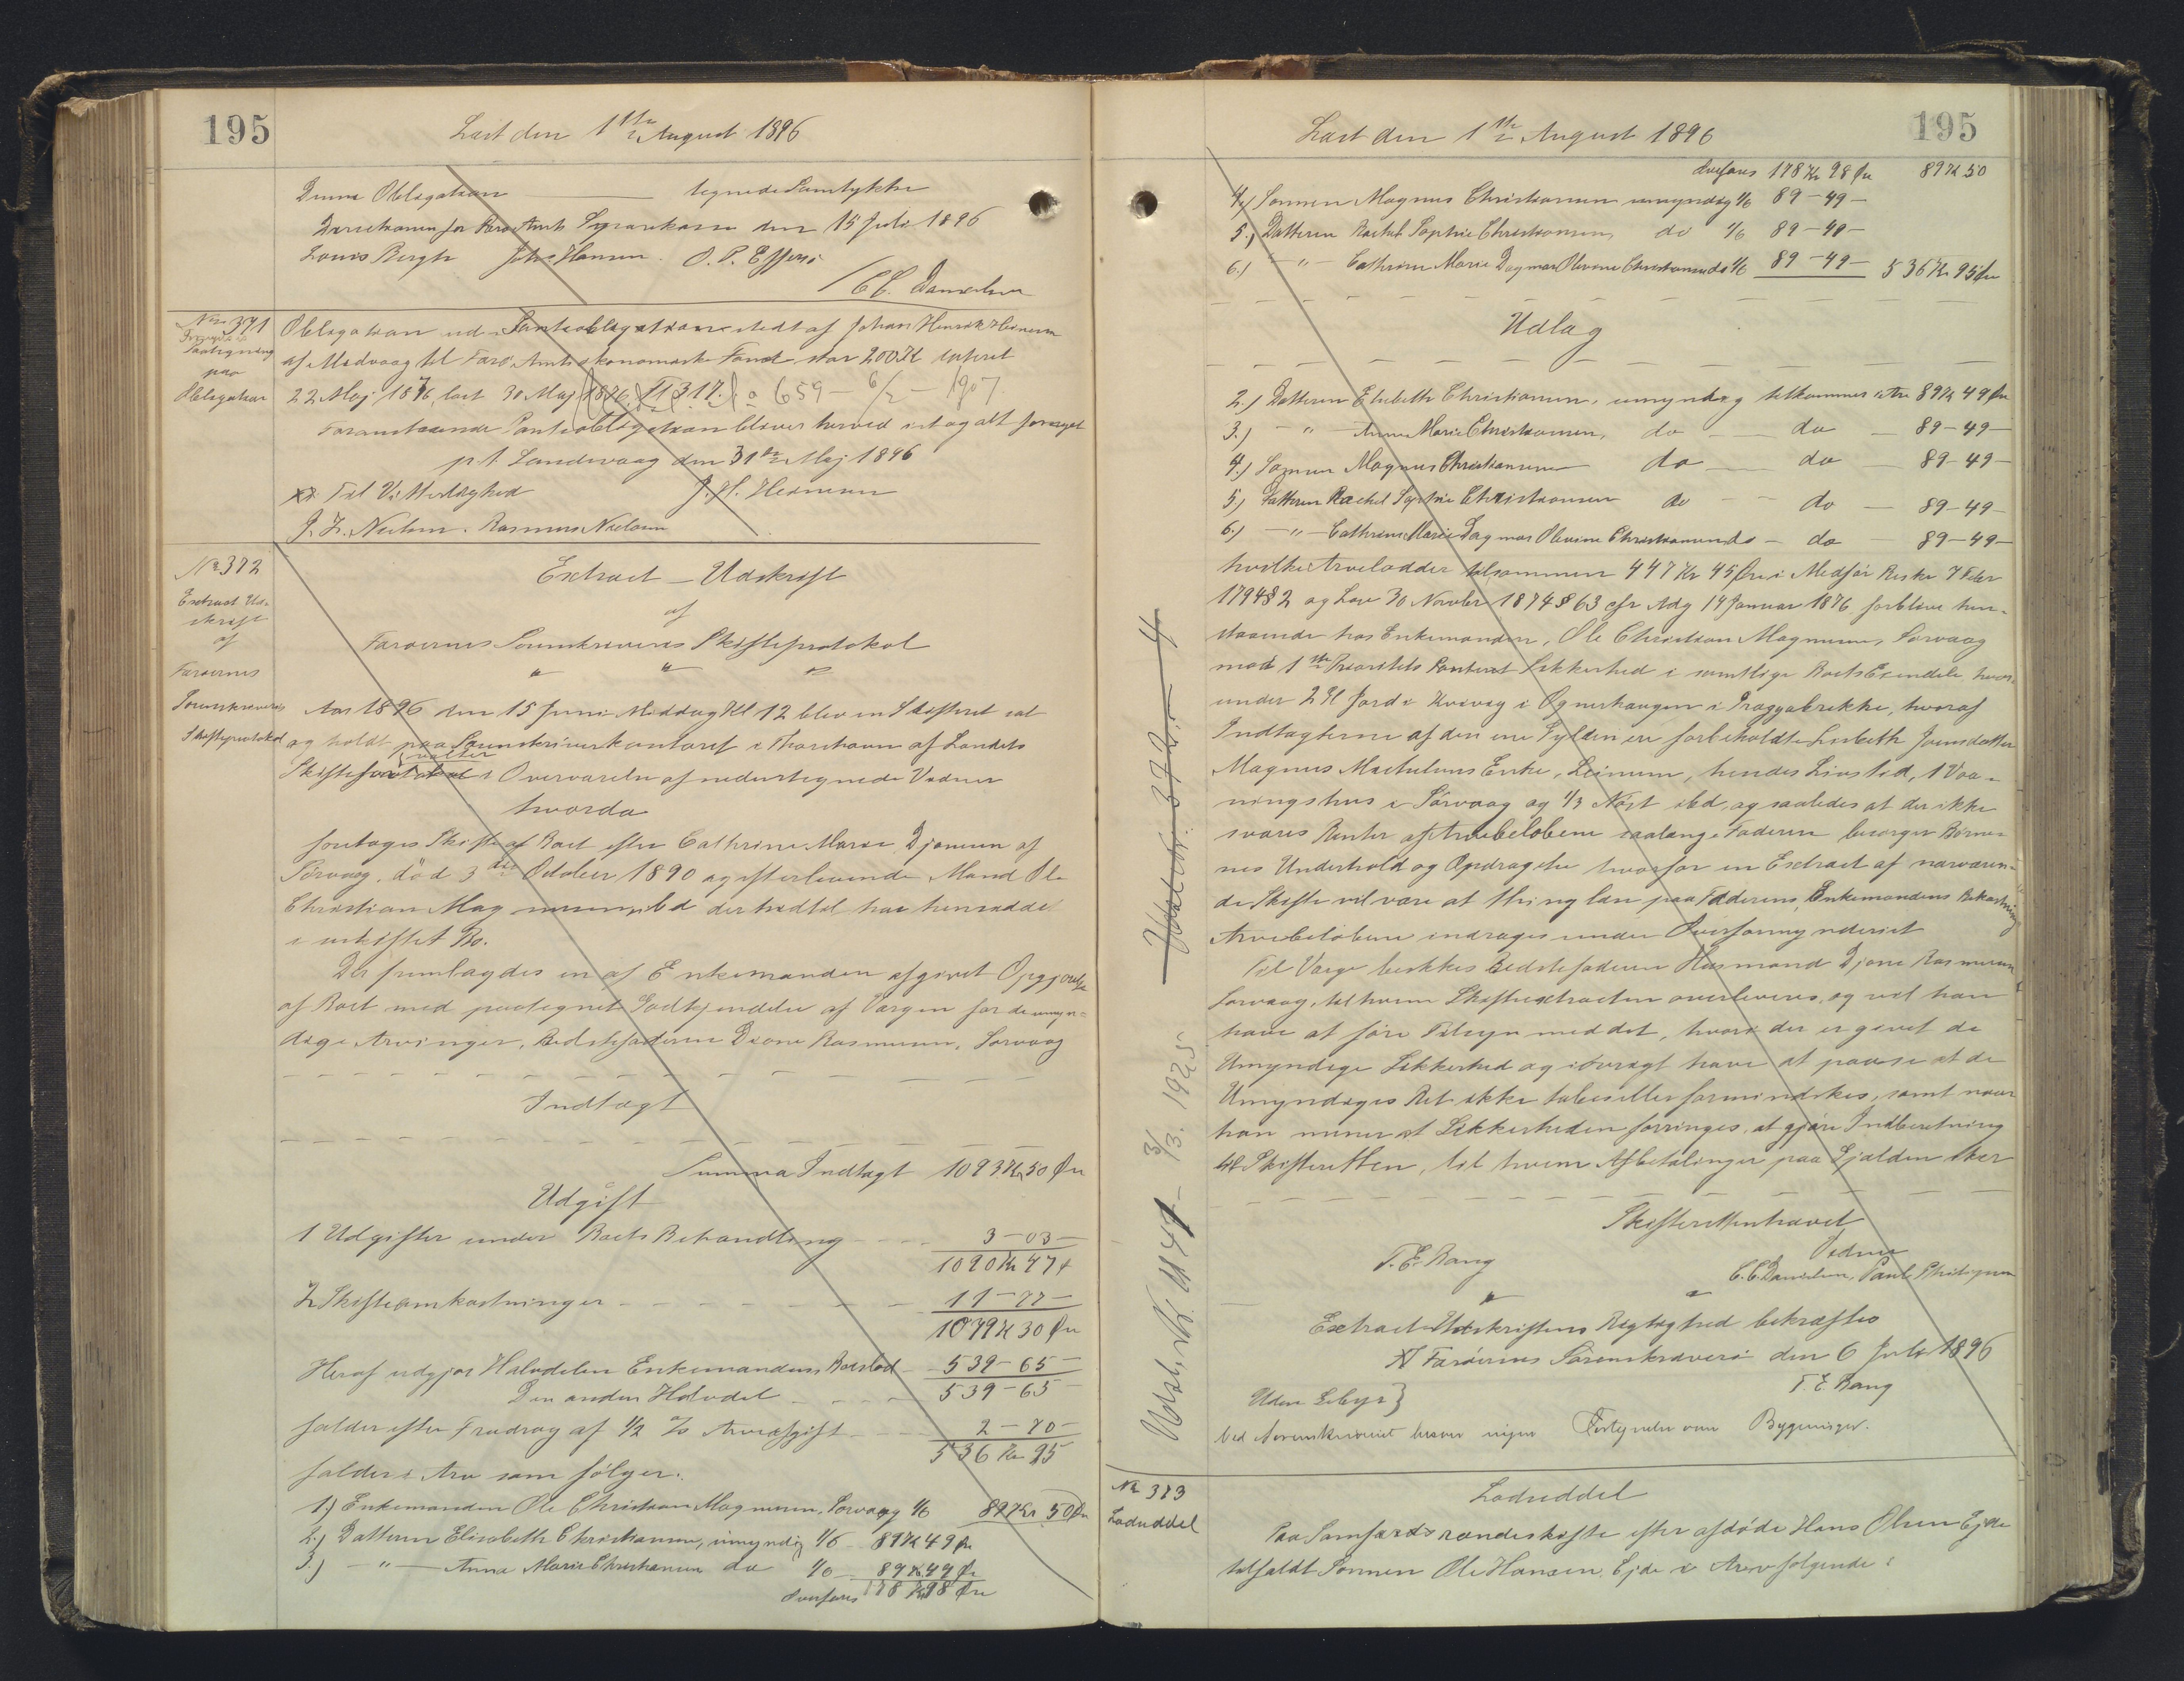 195
Læst den 1ste August 1896
Denne Obligation ——— tegnede Samtykke
Direktionen for Færø Amts Sparekasse den 15 Juli 1896
Louis Bergh Johs Hansen. O. P. Effersø
/ C. C. Danielsen
No 371
Paategning
paa
Obligation
Obligation ud-Panteobligation stedt af Johan Henrik Heinesen
af Midvaag til Færø Amts økonomiske Fond stor 200 Kr dateret
22 Maj 1876, læst 30 Maj 1876, 11 317. 659 – 6/2 – 1907.
Foranstaaende Panteobligation bliver herved i et og alt fornyet
p. t. Sandevaag den 31te Maj 1896
Til Vitterlighed J. H. Heinesen
J. F. Nielsen. Rasmus Nielsen
No 372
Extract Ud-
skrift
af
Færøernes
Sorenskriveris
Skifteprotokol
Extract – Udskrift
af
Færøernes Sorenskriveris Skifteprotokol
Aar 1896 den 15 Juni Middag Kl 12 blev en Skifteret sat
og holdt paa Sorenskriverkontoret i Thorshavn af Landets
Skifteforvalter i Overværelse af nedentegnede Vidner
hvorda
foretages Skifte af Boet efter Cathrine Marie Djonesen af
Sörvaag, död 3die October 1890 og efterlevende Mand Ole
Christian Magnussen, ibd der hidtil har hensiddet
i uskiftet Bo.
Der fremlagdes en af Enkemanden afgivet Opgjørelse
af Boet med paategnet Godkjendelse af Værgen for de umyn-
dige Arvinger, Bedstefaderen Dione Rasmussen, Sørvaag
Indtægt
Summa Indtægt 1093 Kr 50 Øre
Udgift
1 Udgifter under Boets Behandling 3 – 03 –
1090 Kr 47 –
2 Skifteomkostninger 11 – 77 –
1079 Kr 30 Øre
Heraf udgjør Halvdelen Enkemandens Boeslod 539 – 65 –
Den anden Halvdel 539 – 65 –
falder efter Fradrag af 1/2 % Arveafgift 2 – 70 –
536 Kr 95
falder i Arv som følger:
1.) Enkemanden Ole Christian Magnussen, Sørvaag 1/6 89 Kr 50 Øre
2.) Datteren Elisabeth Christiansen, umyndig 1/6 – 89 Kr 49 Øre
3.) – " – Anna Marie Christiansen do 1/6 – 89 Kr 49 Øre
Overføres 178 Kr 98 Øre
195
Læst den 1ste August 1896
Overføres 178 Kr 98 Øre 89 Kr 50
4.) Sønnen Magnus Christiansen umyndig 1/6 89 – 49 –
5.) Datteren Rachel Sophie Christiansen, do 1/6 89 – 49 –
6.) – " – Cathrine Marie Dagmar Olevine Christiansen do 1/6 89 – 49 – 536 Kr 95 Øre
Udlæg
2.) Datteren Elisbeth Christiansen, umyndig tilkommer i Arv 89 Kr 49 Øre
3.) – " – Anna Marie Christiansen, do — do – 89 – 49 –
4.) Sønnen Magnus Christiansen do — do – 89 – 49 –
5.) Datteren Rachel Sophie Christiansen do – – do – 89 – 49 –
6.) – " – Cathrine Marie Dagmar Olevine Christiansen do – do 89 – 49 –
hvilke Arvelodder tilsammen 447 Kr 45 Øre i Medfør Reskr 7 Febr
1794 § 2 og Lov 30 Novbr 1874 § 63 cfr Adg 14 Januar 1876 forblive hen-
staaende hos Enkemanden, Ole Christian Magnussen, Sørvaag
mod 1ste Prioritets Panteret Sikkerhed i samtlige Boets Eiendele, hvor-
under 2 Gl Jord i Kvivig i Ognerhaugen i Traggabrekke, hvoraf
Indtægterne af den ene Gylden ere forbeholdte Lisbeth Joensdatter
Magnus Michelsens Enke, Leinum, hendes Livstid, 1 Vaa-
ningshus i Sørvaag og 1/3 Nøst ibd, og saaledes at der ikke
svares Renter af Arvebeløbene saalænge Faderen besørger Børne-
nes Underhold og Opdragelse hvorfor en Extract af nærværen-
de Skifte vil være at thinglæse paa Faderens, Enkemandens Bekostning
Arvebeløbene inddrages under Overformynderiet
Til Værge beskikkes Bedstefaderen Husmand Djone Rasmussen
Sørvaag, til hvem Skifteextracten overleveres, og vil han
have at føre Tilsyn med det, hvori der er givet de
Umyndige Sikkerhed og iøvrigt have at paase at de
Umyndiges Ret ikke tabes eller formindskes, samt naar
han mener at Sikkerheden forringes, at gjøre Indberetning
til Skifteretten, til hvem Afbetalinger paa Gjælden sker
Skifteretten hævet
T. E. Bang Vidner
C. C. Danielsen, Paul
Extract Udskriftens Rigtighed bekræftes
Færøernes Sorenskriveri den 6 Juli 1896
T. E. Bang
Uden Gebyr}
ved Sorenskriveriet beror ingen Fortegnelse over Bygninger.
3/3. 1925
No 373
Lodseddel
Lodseddel
Paa Samfrændeskifte efter afdøde Hans Olsen Ejde
tilfaldt Sønnen Ole Hansen, Ejde i Arv følgende: